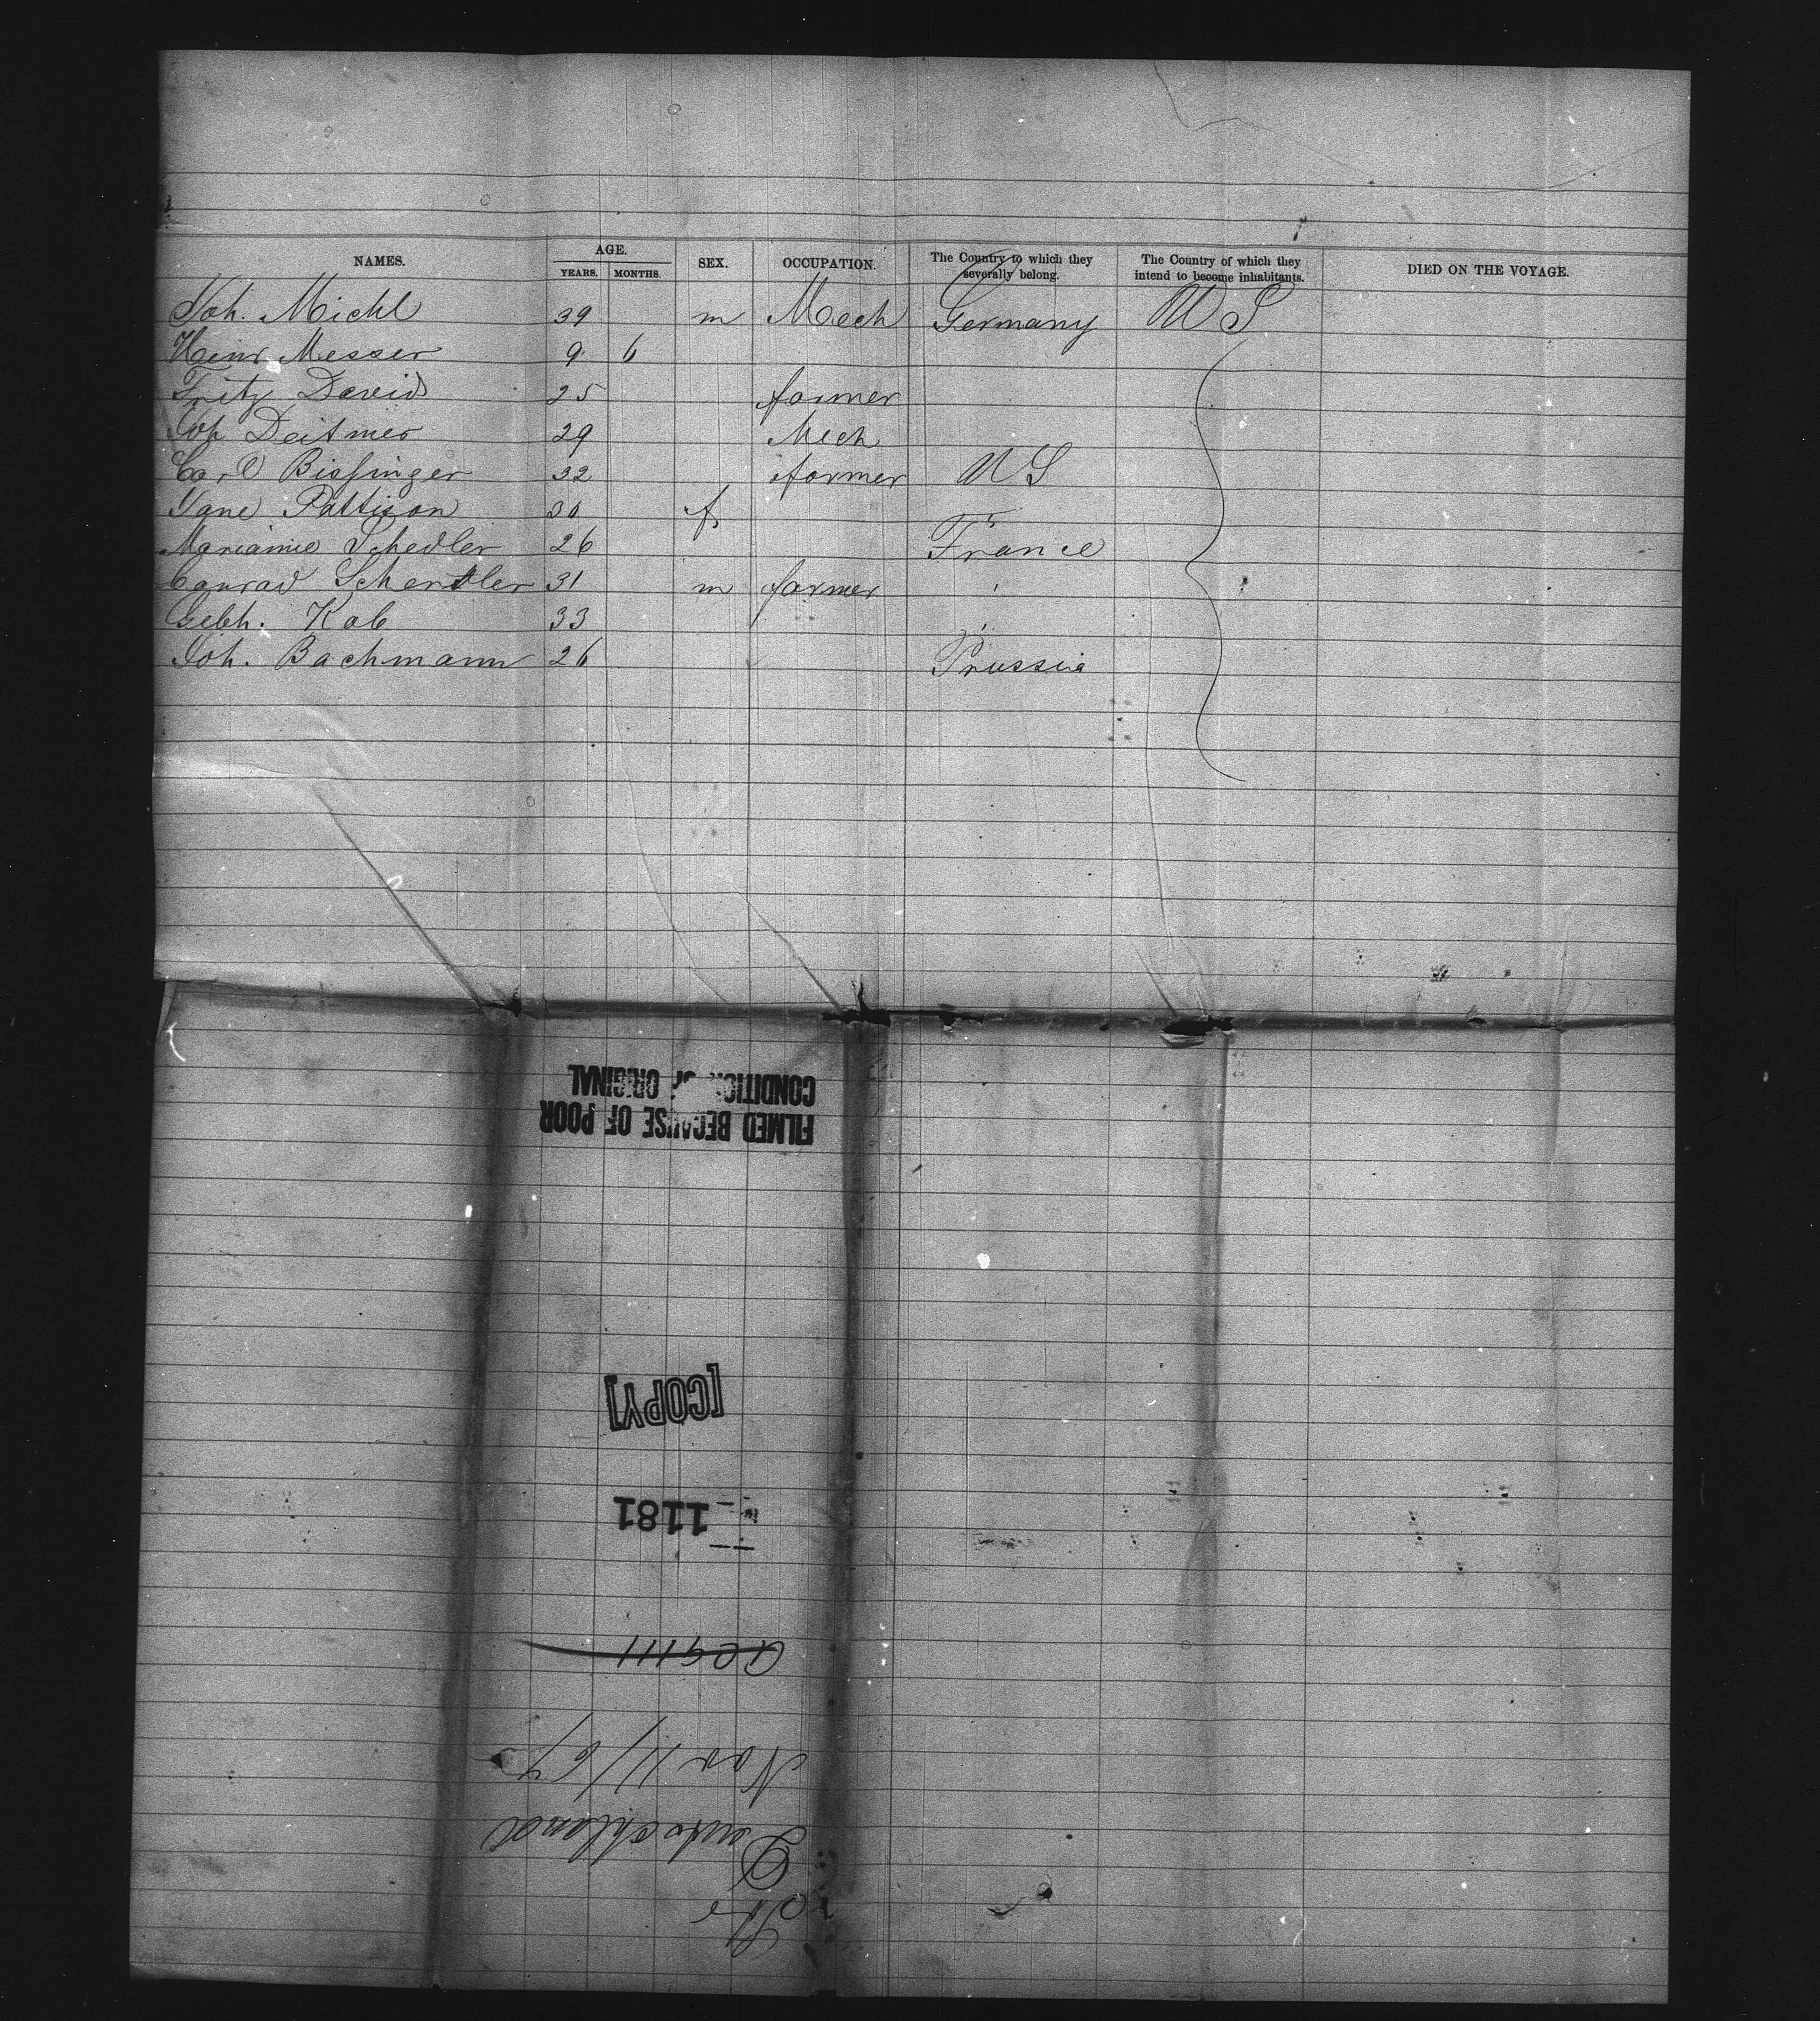 NAMES. AGE. YEARS. MONTHS. SEX. OCCUPATION. The Country to which they severally belong. The Country of which they intend to become inhabitants. DIED ON THE VOYAGE.
Joh. Michl 39 m Mech Germany U S
Heinr Messer 9 6
Fritz David 25 farmer
Joh Deitmer 29 Mech
Carl Bissinger 32 farmer U S
Jane Pattison 30 f "
Marianne Schedler 26 France
Conrad Schendler 31 m farmer "
Gebh. Kab 33 "
Joh. Bachmann 26 Prussia
Str
Deutschland
Nov 11/67
1181
[COPY]
FILMED BECAUSE OF POOR
CONDITION OF ORIGINAL